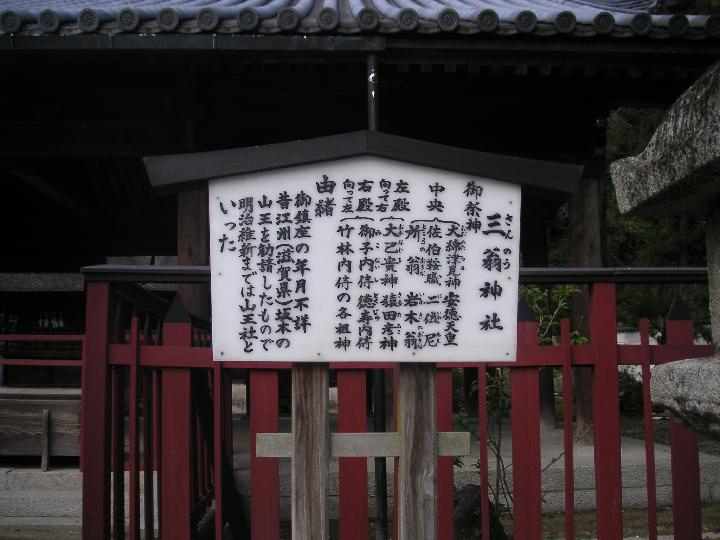 三翁神社
さんのう
御祭神
中央
大綿津見神 安徳天皇
佐伯鞍職 二位尼
所翁 岩木翁
左殿
向って右
大己貴神 猿田彦神
右殿
向って左
御子内侍 徳寿内侍
竹林内侍の各祖神
由緒
御鎮座の年月不詳
昔江州(滋賀県)坂本の
山王を勧請したもので
明治維新までは山王社と
いった